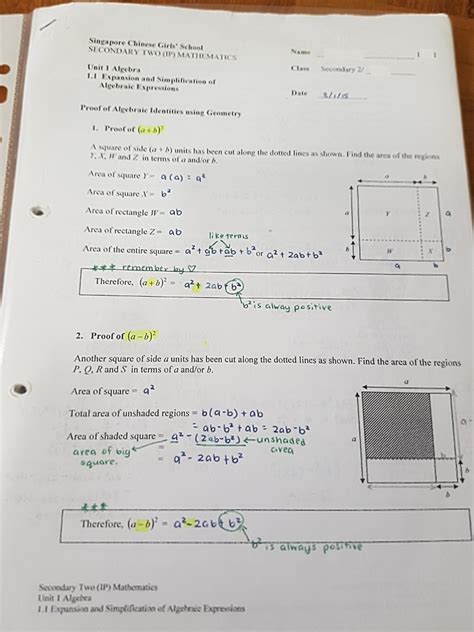 Singapore Chinese Girls' School
SECONDARY TWO (IP) MATHEMATICS
Name ( )
Unit 1 Algebra
Class Secondary 2/
1.1 Expansion and Simplification of
Algebraic Expressions
Date 3/1/15
Proof of Algebraic Identities using Geometry
1. Proof of (a + b)²
A square of side (a + b) units has been cut along the dotted lines as shown. Find the area of the regions
Y, X, W and Z in terms of a and/or b.
Area of square Y = a(a) = a²
Area of square X = b²
Area of rectangle W = ab
Area of rectangle Z = ab
like terms
Area of the entire square = a² + ab + ab + b² or a² + 2ab + b²
a b
a Y Z a
b W X b
a b
*** remember by ♡
Therefore, (a + b)² = a² + 2ab + b²
b² is alway positive
2. Proof of (a – b)²
Another square of side a units has been cut along the dotted lines as shown. Find the area of the regions
P, Q, R and S in terms of a and/or b.
Area of square = a²
Total area of unshaded regions = b(a-b) + ab
= ab - b² + ab = 2ab - b²
Area of shaded square = a² - (2ab - b²) ← unshaded area
area of big square.
=
= a² - 2ab + b²
a
a
b
b
b
***
Therefore, (a – b)² = a² - 2ab + b²
b² is always positive
Secondary Two (IP) Mathematics
Unit 1 Algebra
1.1 Expansion and Simplification of Algebraic Expressions